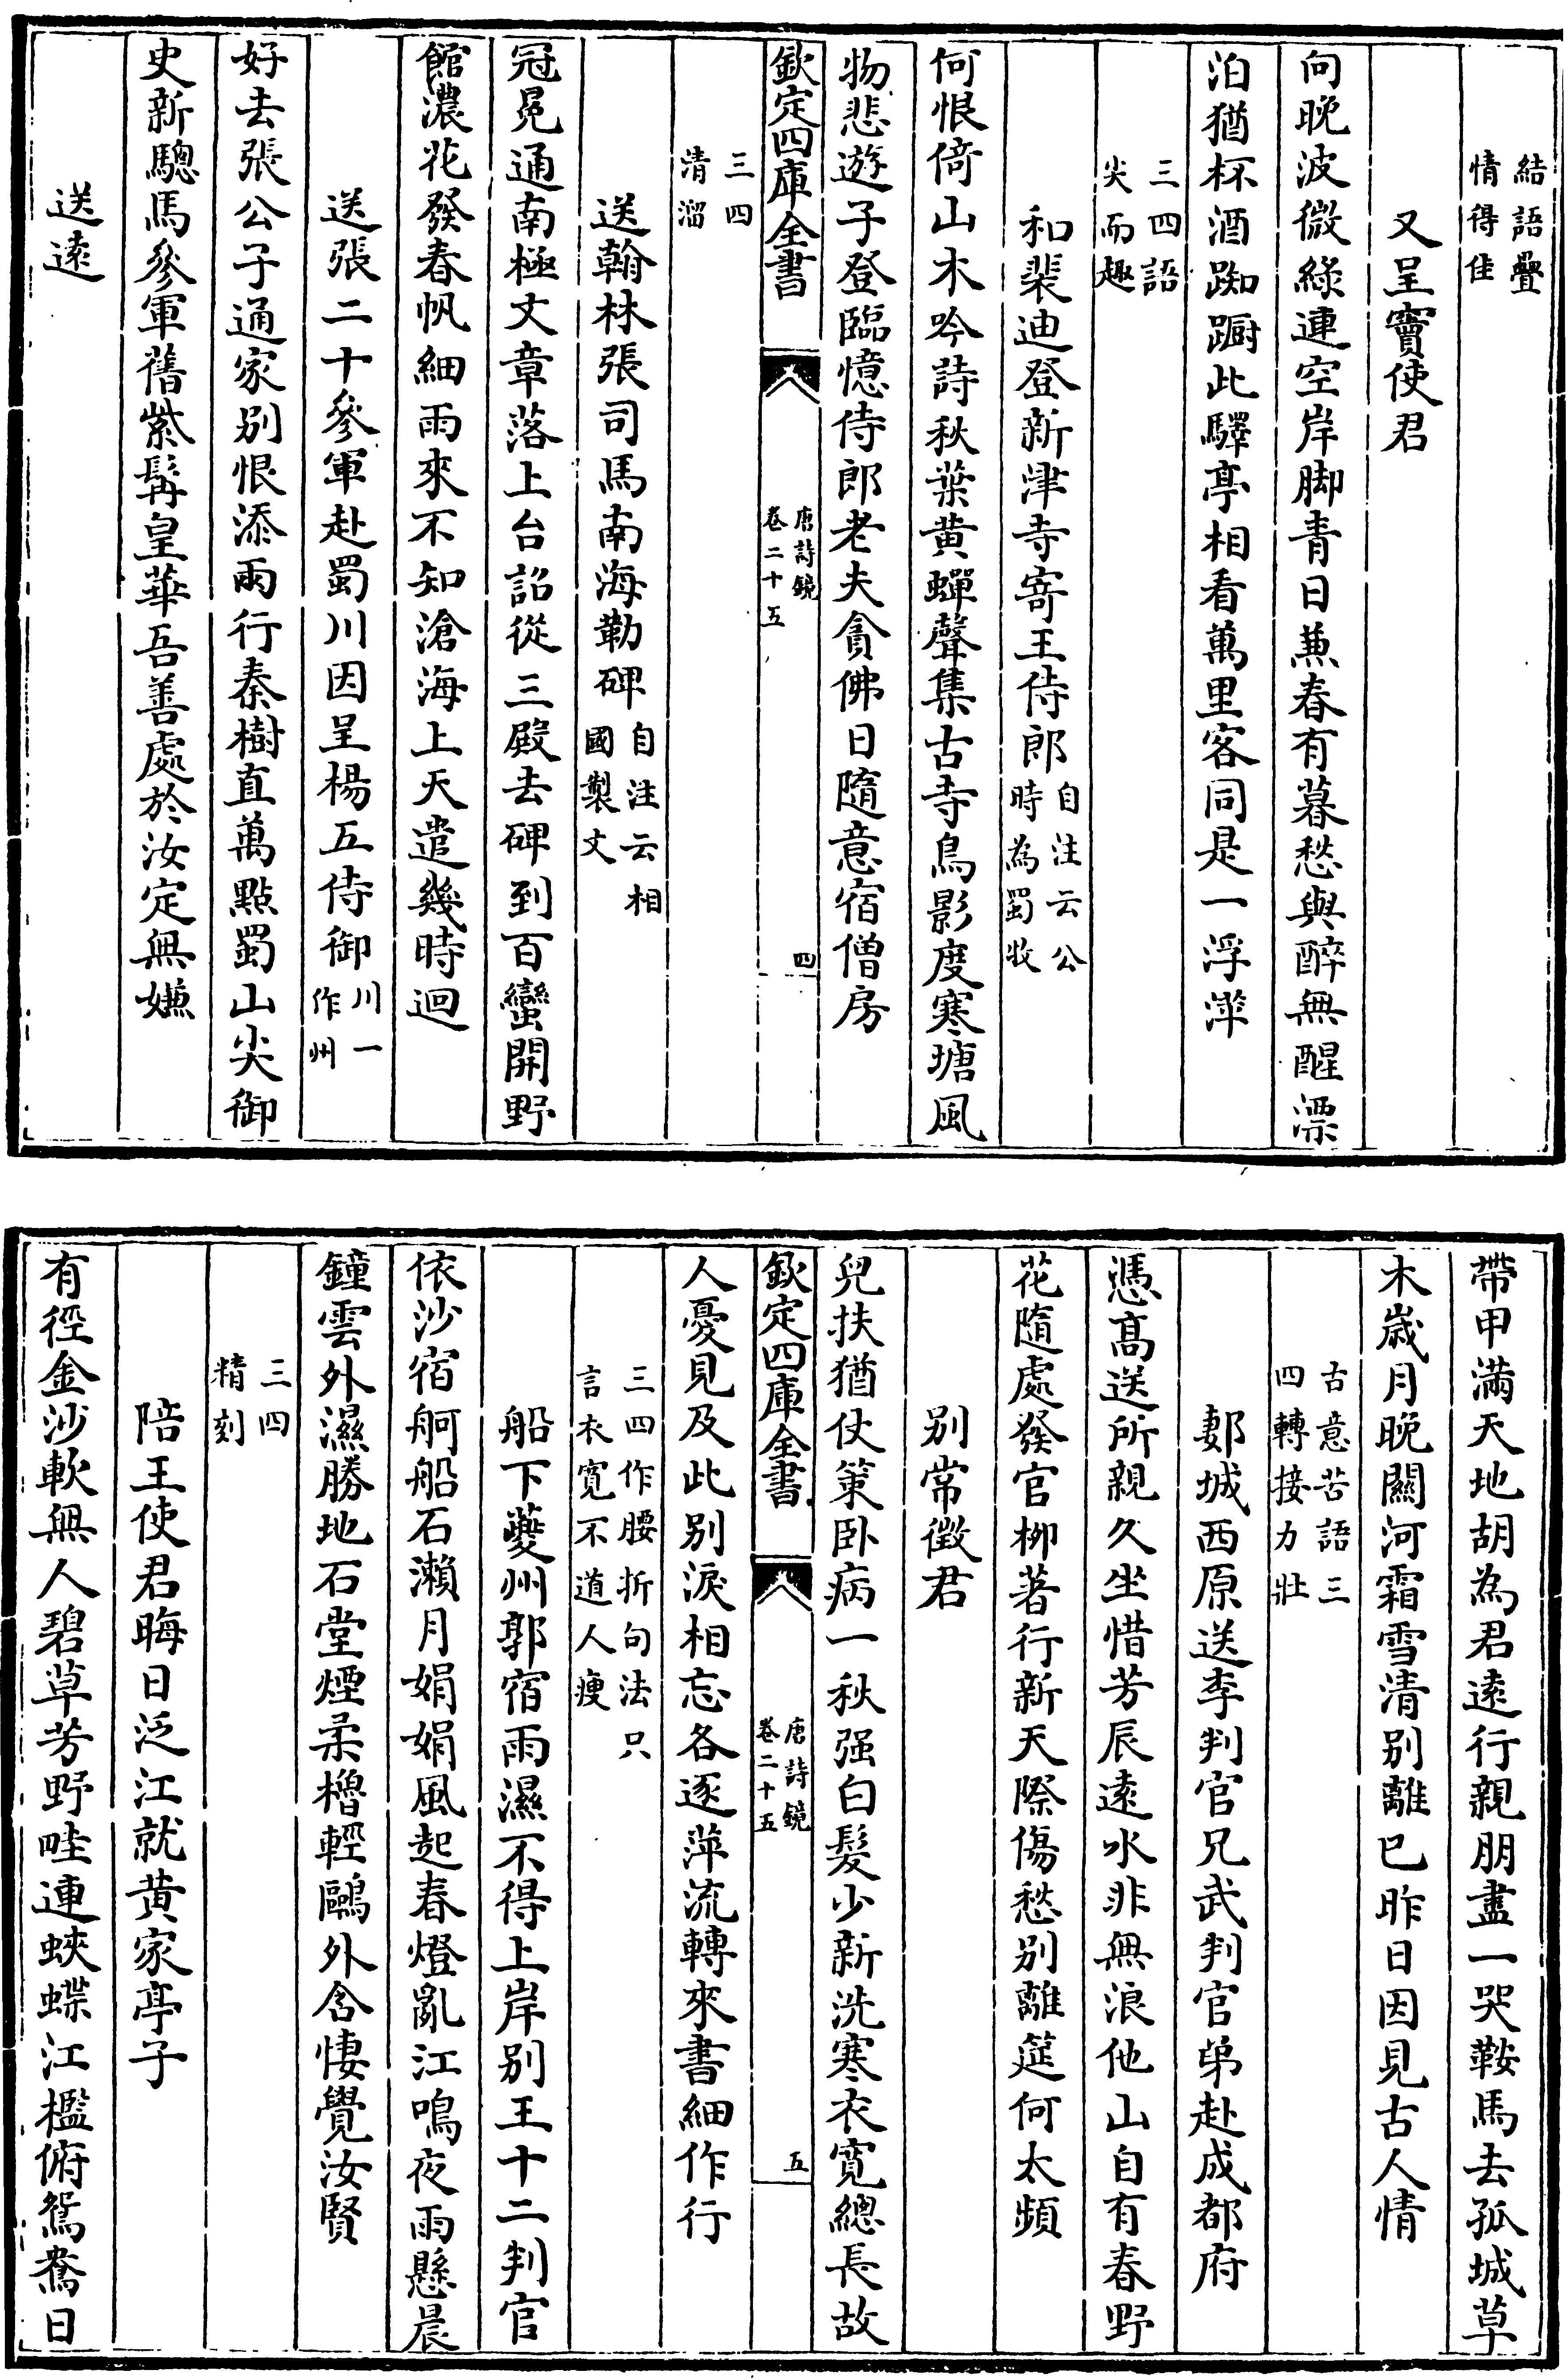 結語疊
情得佳
又呈竇使君
向晚波微綠連空岸脚青日兼春有暮愁與醉無醒漂
泊猶杯酒踟蹰此驛亭相看萬里客同是一浮萍
三四語
尖而趣
和裴迪登新津寺寄王侍郎自注云公
時為蜀牧
何恨倚山木吟詩秋葉黄蟬聲集古寺鳥影度寒塘風
物悲遊子登臨憶侍郎老夫貪佛日隨意宿僧房
欽定四庫全書
唐詩鏡
卷二十五
四
三四
清溜
送翰林張司馬南海勒碑自注云相
國製文
冠冕通南極文章落上台詔從三殿去碑到百蠻開野
館濃花發春帆細雨來不知滄海上天遣幾時迴
送張二十參軍赴蜀川因呈楊五侍御川一
作州
好去張公子通家别恨添兩行秦樹直萬點蜀山尖御
史新驄馬參軍舊紫髯皇華吾善處於汝定無嫌
送遠
帶甲滿天地胡為君遠行親朋盡一哭鞍馬去孤城草
木歲月晚關河霜雪清别離已昨日因見古人情
古意苦語三
四轉接力壯
郪城西原送李判官兄武判官弟赴成都府
憑高送所親久坐惜芳辰遠水非無浪他山自有春野
花隨處發官柳著行新天際傷愁别離筵何太頻
别常徵君
兒扶猶仗策卧病一秋强白髮少新洗寒衣寬總長故
欽定四庫全書
唐詩鏡
卷二十五
五
人憂見及此别淚相忘各逐萍流轉來書細作行
三四作腰折句法只
言衣寬不道人瘦
船下夔州郭宿雨濕不得上岸别王十二判官
依沙宿舸船石瀨月娟娟風起春燈亂江鳴夜雨懸晨
鐘雲外濕勝地石堂煙柔櫓輕鷗外含悽覺汝賢
三四
精刻
陪王使君晦日泛江就黄家亭子
有徑金沙軟無人碧草芳野畦連蛺蝶江檻俯鴛鴦日